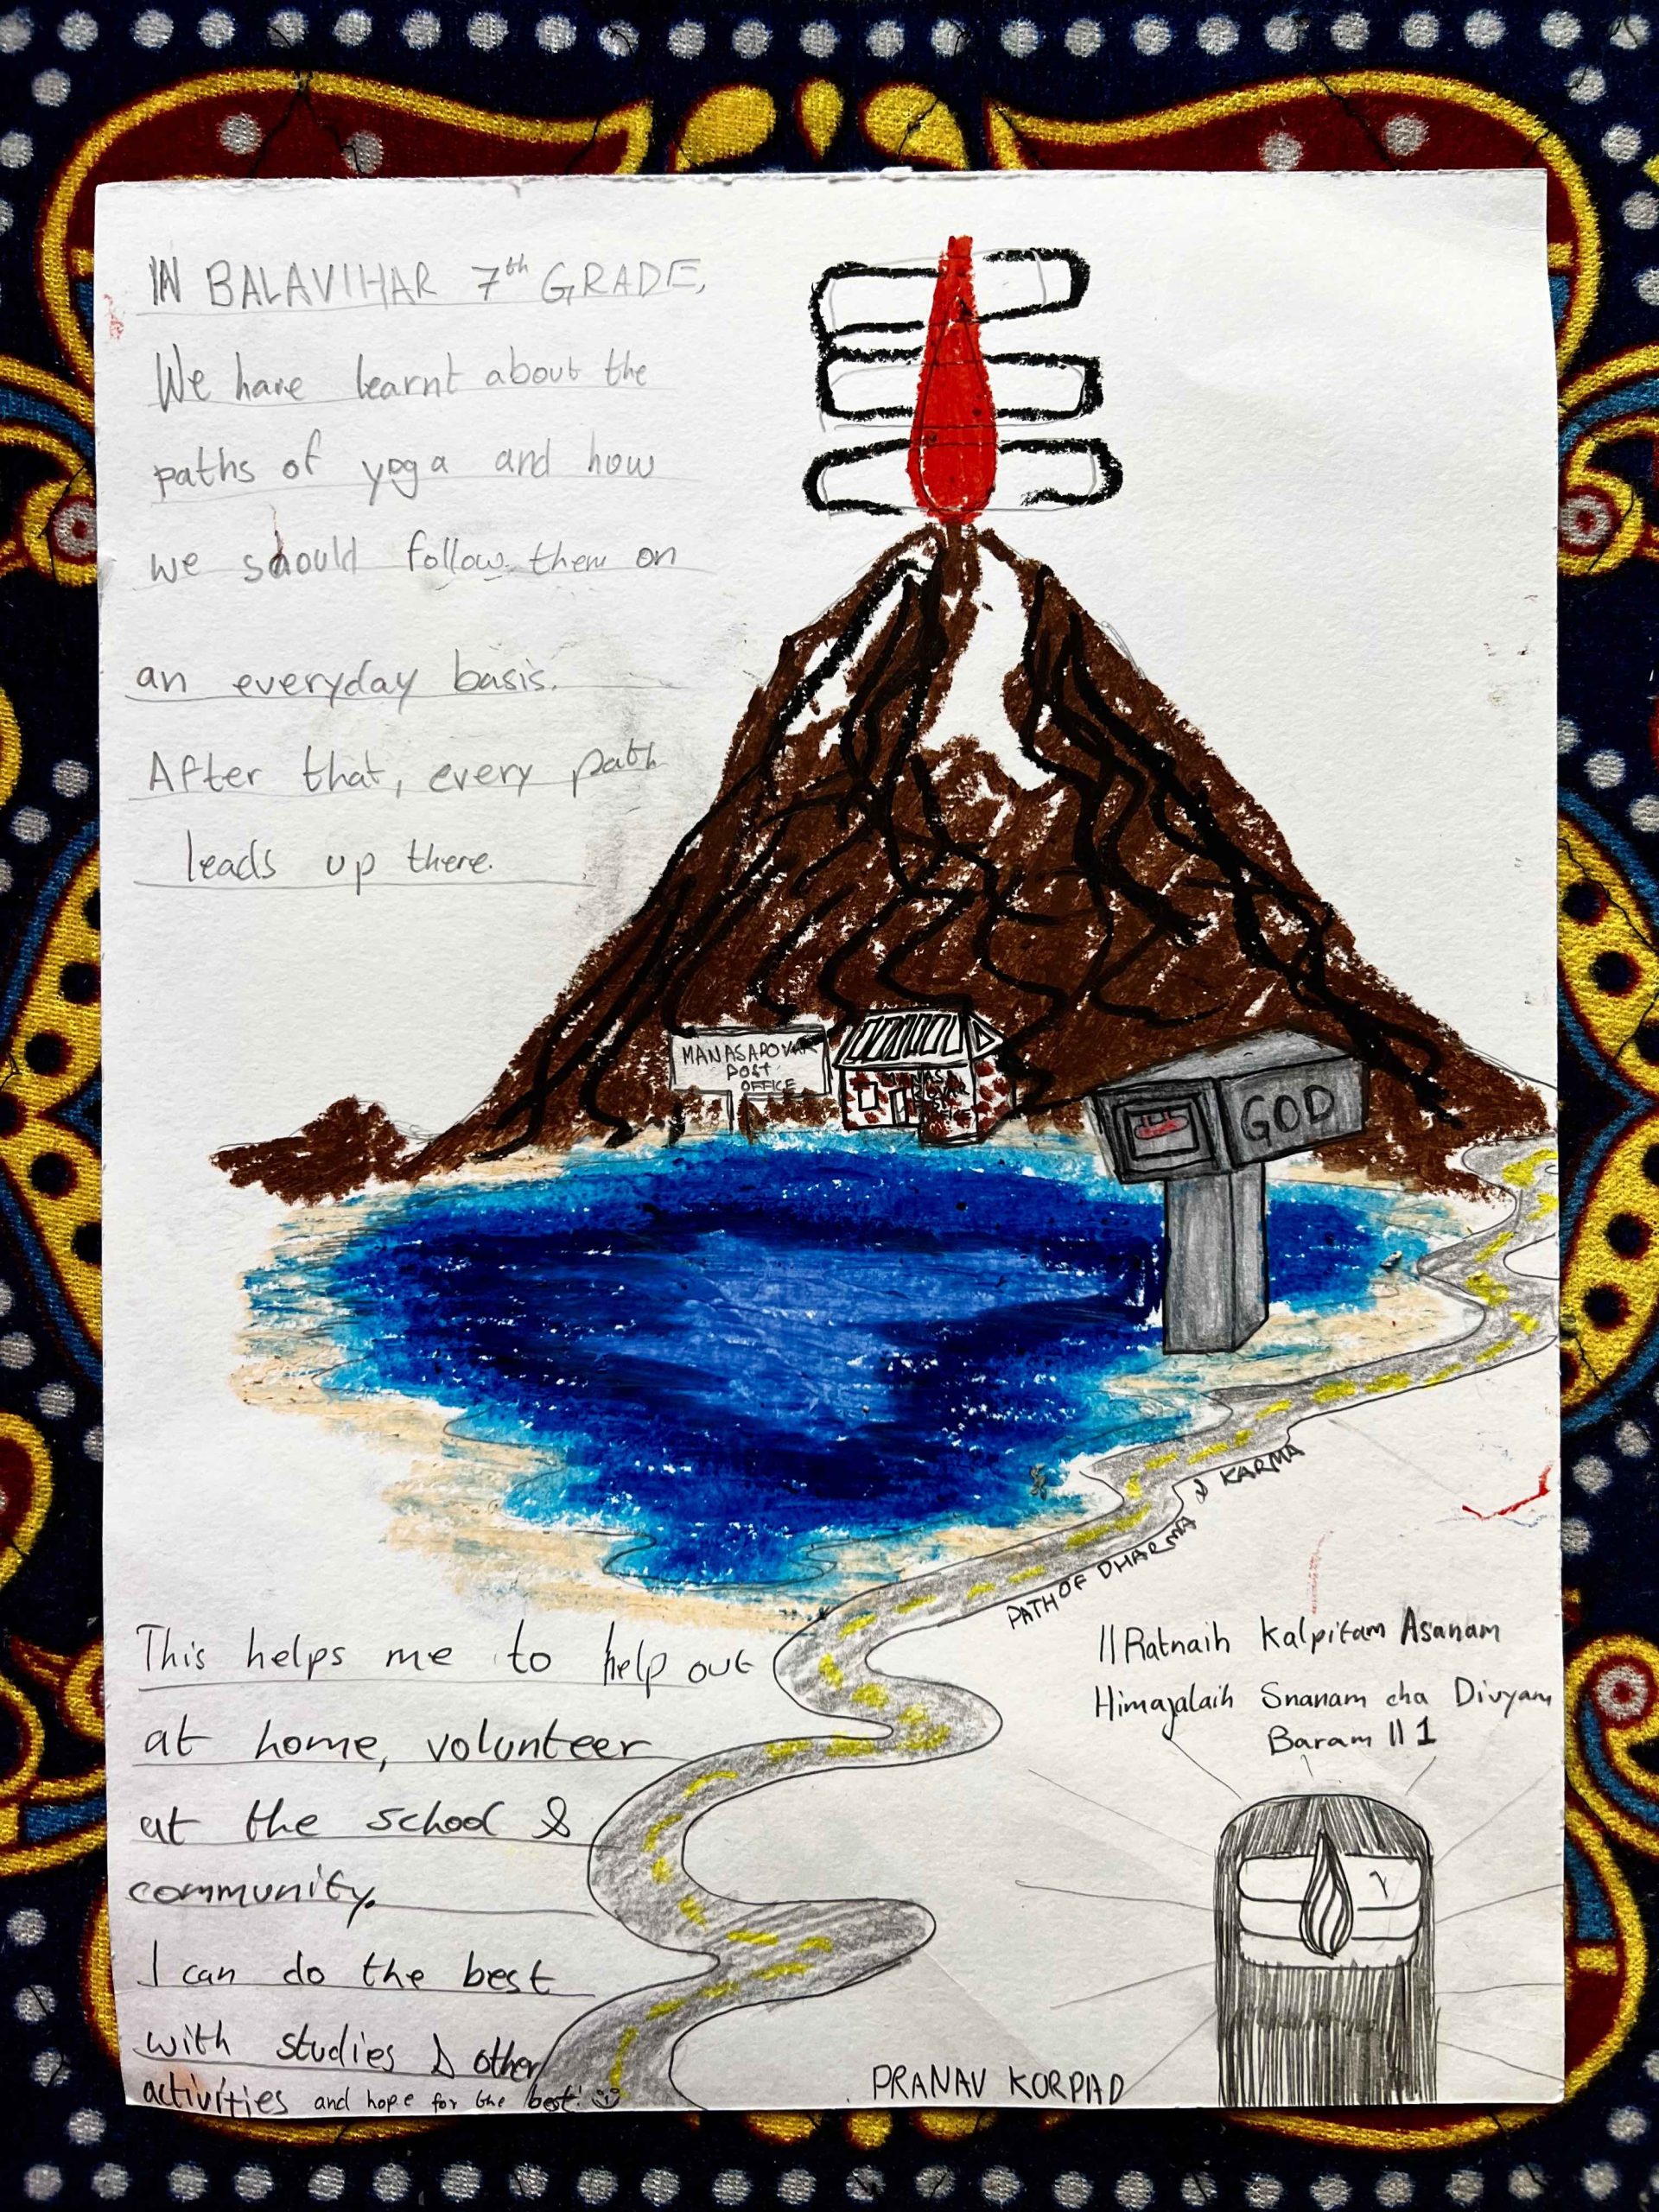 IN BALAVIHAR 7th GRADE,
We have learnt about the
paths of yoga and how
we should follow them on
an everyday basis.
After that, every path
leads up there.
MANASAROVAR
POST
OFFICE
MANASA
ROVAR
GOD
PATH OF DHARMA & KARMA
This helps me to help out
at home, volunteer
at the school &
community.
I can do the best
with studies & other
activities and hope for the best!
||Ratnaih Kalpitam Asanam
Himajalaih Snanam cha Divyam
Baram || 1
PRANAV KORPAD